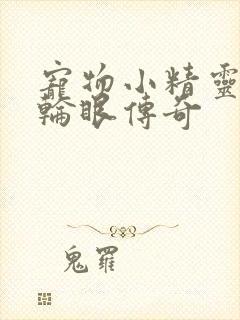 寵物小精靈
輪眼傳奇
鬼羅